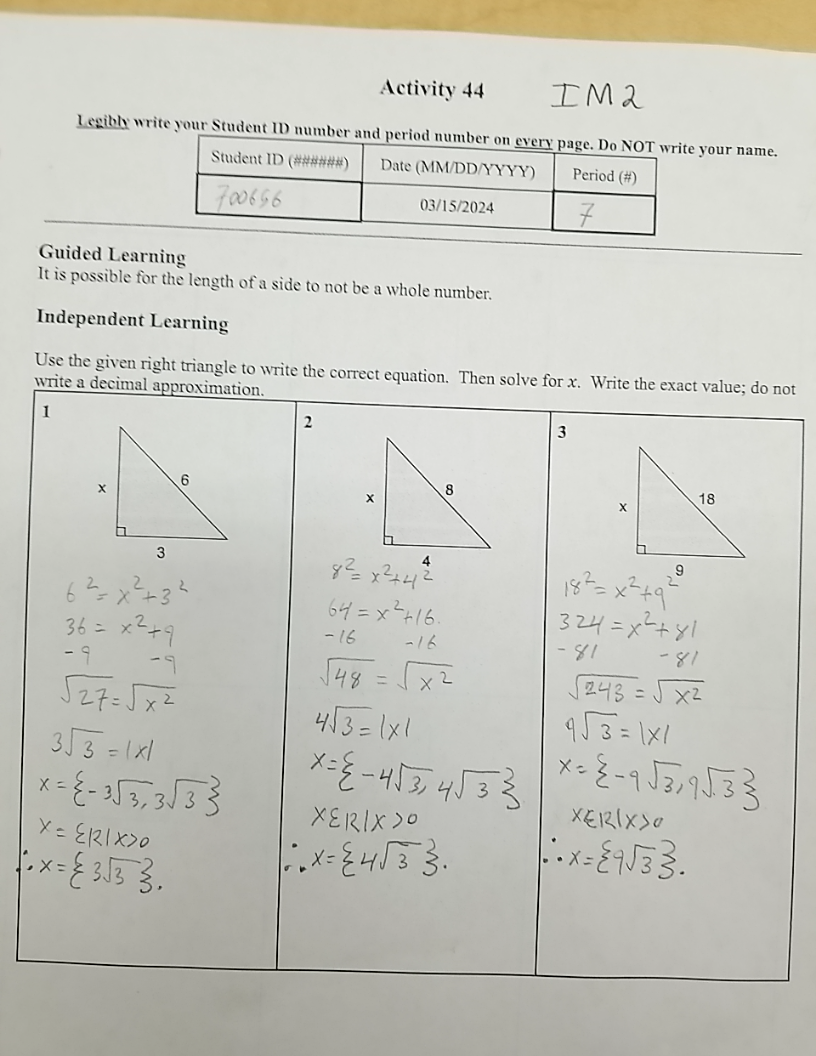 Activity 44 IM2
Legibly write your Student ID number and period number on every page. Do NOT write your name.
Student ID (######) Date (MM/DD/YYYY) Period (#)
700656 03/15/2024 7
Guided Learning
It is possible for the length of a side to not be a whole number.
Independent Learning
Use the given right triangle to write the correct equation. Then solve for x. Write the exact value; do not
write a decimal approximation.
1
x
6
3
6² = x² + 3²
36 = x² + 9
-9 -9
√27 = √x²
3√3 = |x|
x = {-3√3, 3√3}
x = ℰℝ|x>0
∴ x = {3√3}.
2
x
8
4
8² = x² + 4²
64 = x² + 16.
-16 -16
√48 = √x²
4√3 = |x|
x = {-4√3, 4√3}
xℰℝ|x>0
∴ x = {4√3}.
3
x
18
9
18² = x² + 9²
324 = x² + 81
-81 -81
√243 = √x²
9√3 = |x|
x = {-9√3, 9√3}
x∈ℝ|x>0
∴ x = {9√3}.